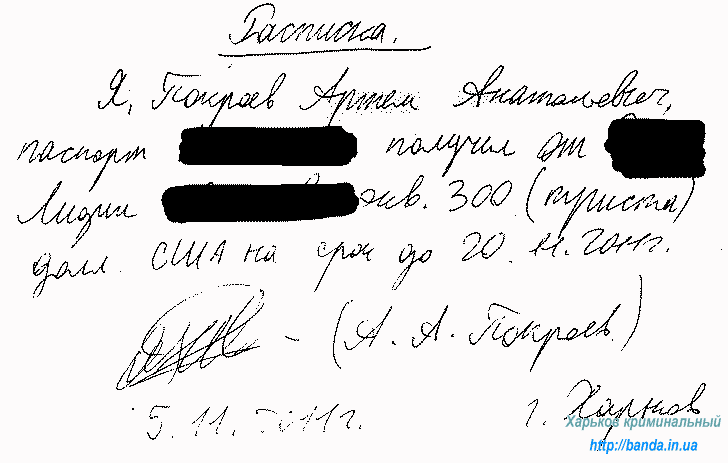 Расписка.
Я, Покроев Артем Анатольевич,
паспорт получил от
Лидии экв. 300 (триста)
долл. США на срок до 20.11.2011г.
– (А. А. Покроев.)
5.11.2011г. г. Харьков
Харьков криминальный
http://banda.in.ua